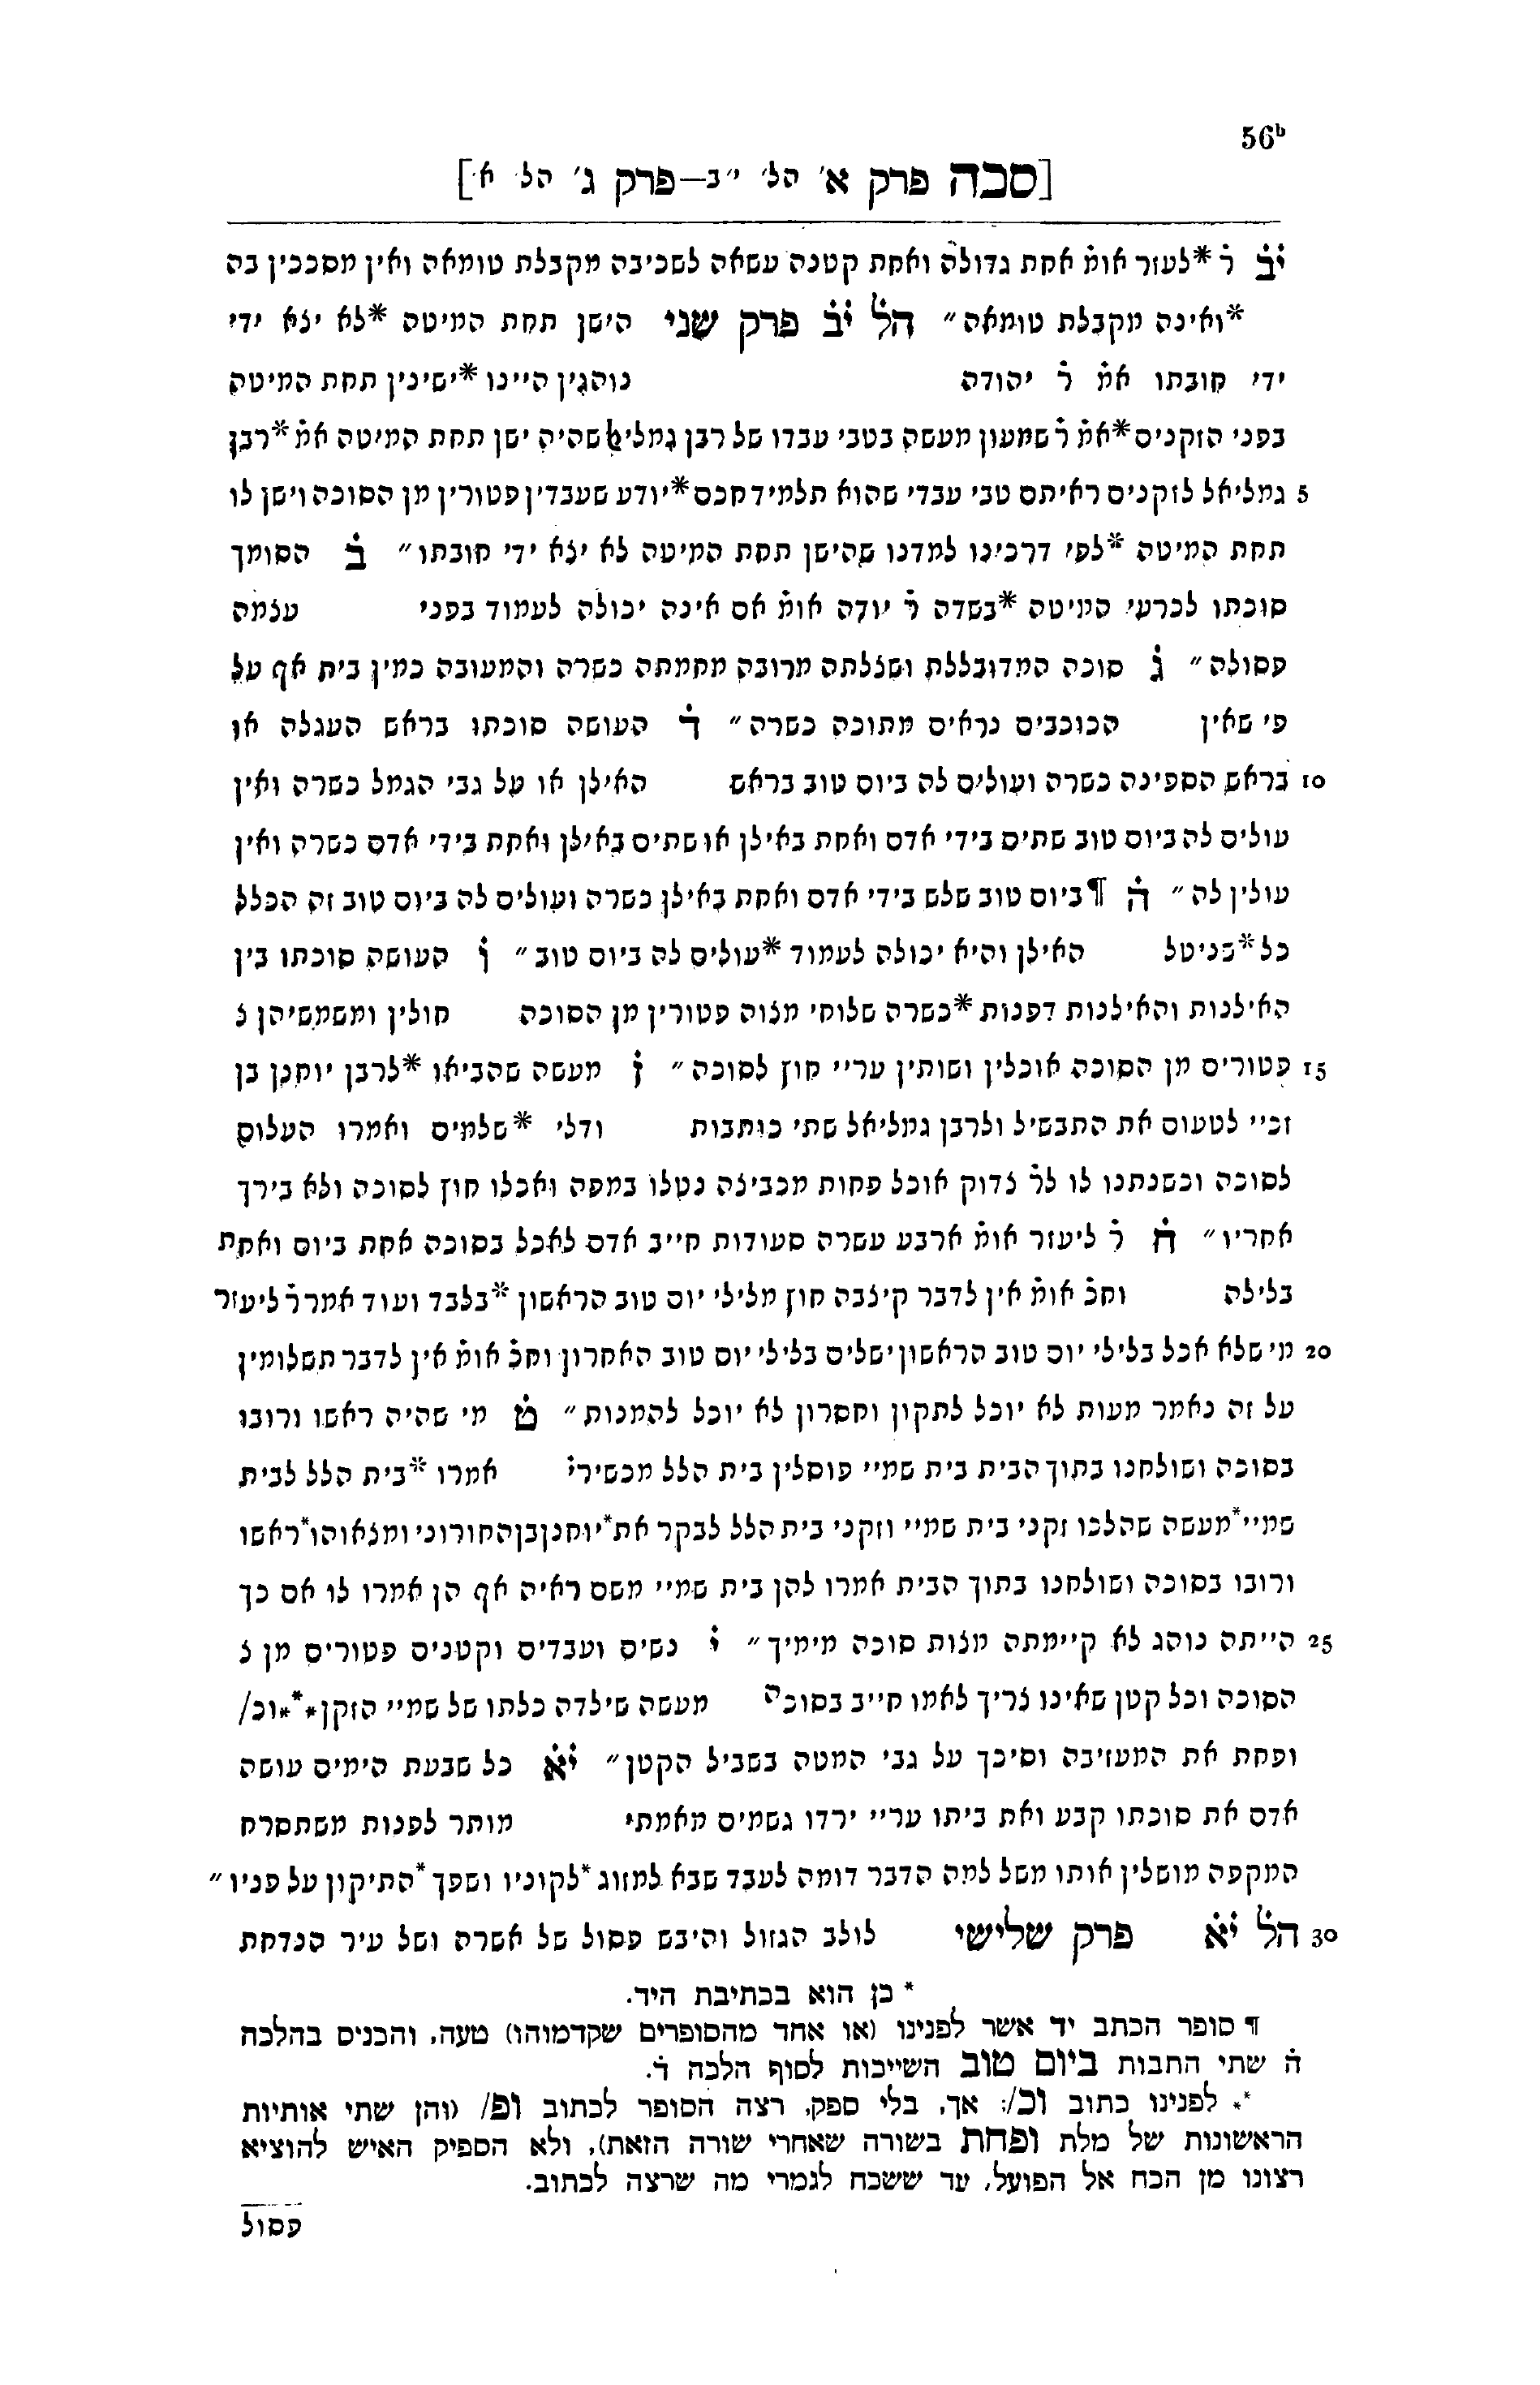 56ᵇ
[סכה פרק א׳ הל׳ י״ב—פרק ג׳ הל׳ א׳]
יב ר *לעזר אומ אחת גדולה ואחת קטנה עשאה לשכיבה מקבלת טומאה ואין מסככין בה
*ואינה מקבלת טומאה״ הל יב פרק שני הישן תחת המיטה *לא יצא ידי
ידי חובתו אמ ר יהודה נוהגין היינו *ישינין תחת המיטה
בפני הזקנים*אמ ר שמעון מעשה בטבי עבדו של רבן גמליאל שהיה ישן תחת המיטה אמ*רבן
5 גמליאל לזקנים ראיתם טבי עבדי שהוא תלמיד חכם*יודע שעבדין פטורין מן הסוכה וישן לו
תחת המיטה *לפי דרכינו למדנו שהישן תחת המיטה לא יצא ידי חובתו״ ב הסומך
סוכתו לכרעי המיטה *בשדה ר יודה אומ אם אינה יכולה לעמוד בפני עצמה
פסולה״ ג סוכה המדובללת ושצלתה מרובה מחמתה כשרה והמעובה כמין בית אף על
פי שאין הכוכבים נראים מתוכה כשרה״ ד העושה סוכתו בראש העגלה או
10 בראש הספינה כשרה ועולים לה ביום טוב בראש האילן או על גבי הגמל כשרה ואין
עולים לה ביום טוב שתים בידי אדם ואחת באילן או שתים באילן ואחת בידי אדם כשרה ואין
עולין לה״ ה ¶ביום טוב שלש בידי אדם ואחת באילן כשרה ועולים לה ביום טוב זה הכלל
כל*פניטל האילן והיא יכולה לעמוד *עולים לה ביום טוב״ ו העושה סוכתו בין
האילנות והאילנות דפנות *כשרה שלוחי מצוה פטורין מן הסוכה חולין ומשמשיהן צ
15 פטורים מן הסוכה אוכלין ושותין עריי חוץ לסוכה״ ז מעשה שהביאו *לרבן יוחנן בן
זכיי לטעום את התבשיל ולרבן גמליאל שתי כותבות ודלי *שלמים ואמרו העלום
לסוכה וכשנתנו לו לר צדוק אוכל פחות מכביצה נטלו במפה ואכלו חוץ לסוכה ולא בירך
אחריו״ ח ר ליעזר אומ ארבע עשרה סעודות חייב אדם לאכל בסוכה אחת ביום ואחת
בלילה וחכ אומ אין לדבר קיצבה חוץ מלילי יום טוב הראשון *בלבד ועוד אמר ר ליעזר
20 מי שלא אכל בלילי יום טוב הראשון ישלים בלילי יום טוב האחרון וחכ אומ אין לדבר תשלומין
על זה נאמר מעות לא יוכל לתקון וחסרון לא יוכל להמנות״ ט מי שהיה ראשו ורובו
בסוכה ושולחנו בתוך הבית בית שמיי פוסלין בית הלל מכשירי אמרו *בית הלל לבית
שמיי*מעשה שהלכו זקני בית שמיי וזקני בית הלל לבקר את*יוחנן בן החורוני ומצאוהו*ראשו
ורובו בסוכה ושולחנו בתוך הבית אמרו להן בית שמיי משם ראיה אף הן אמרו לו אם כך
25 הייתה נוהג לא קיימתה מצות סוכה מימיך״ י נשים ועבדים וקטנים פטורים מן צ
הסוכה וכל קטן שאינו צריך לאמו חייב בסוכה מעשה שילדה כלתו של שמיי הזקן*⁎*וכ/
ופחת את המעזיבה וסיכך על גבי המטה בשביל הקטן״ יא כל שבעת הימים עושה
אדם את סוכתו קבע ואת ביתו עריי ירדו גשמים מאמתי מותר לפנות משתסרח
המקפה מושלין אותו משל למה הדבר דומה לעבד שבא למזוג*לקוניו ושפך*התיקון על פניו״
30 הל יא פרק שלישי לולב הגזול והיבש פסול של אשרה ושל עיר הנדחת
* כן הוא בכתיבת היד.
¶ סופר הכתב יד אשר לפנינו (או אחד מהסופרים שקדמוהו) טעה, והכניס בהלכה
ה שתי התבות ביום טוב השייכות לסוף הלכה ד.
*⁎ לפנינו כתוב וכ/; אך, בלי ספק, רצה הסופר לכתוב ופ/ (והן שתי אותיות
הראשונות של מלת ופחת בשורה שאחרי שורה הזאת), ולא הספיק האיש להוציא
רצונו מן הכח אל הפועל, עד ששכח לגמרי מה שרצה לכתוב.
פסול